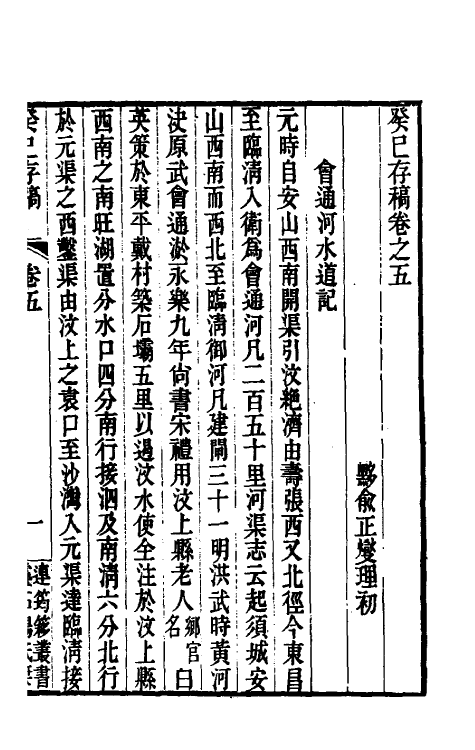 癸巳存稿卷之五
黟俞正燮理初
會通河水道記
元時自安山西南開渠引汶絶濟由壽張西又北徑今東昌
至臨淸入衛爲會通河凡二百五十里河渠志云起須城安
山西南而西北至臨淸御河凡建閘三十一明洪武時黃河
決原武會通淤永樂九年尙書宋禮用汶上縣老人鄕官名白
英策於東平戴村築石壩五里以遏汶水使全注於汶上縣
西南之南旺湖置分水口四分南行接泗及南淸六分北行
於元渠之西鑿渠由汶上之袁口至沙灣入元渠達臨淸接
癸巳存稿 卷五 一 連筠簃叢書